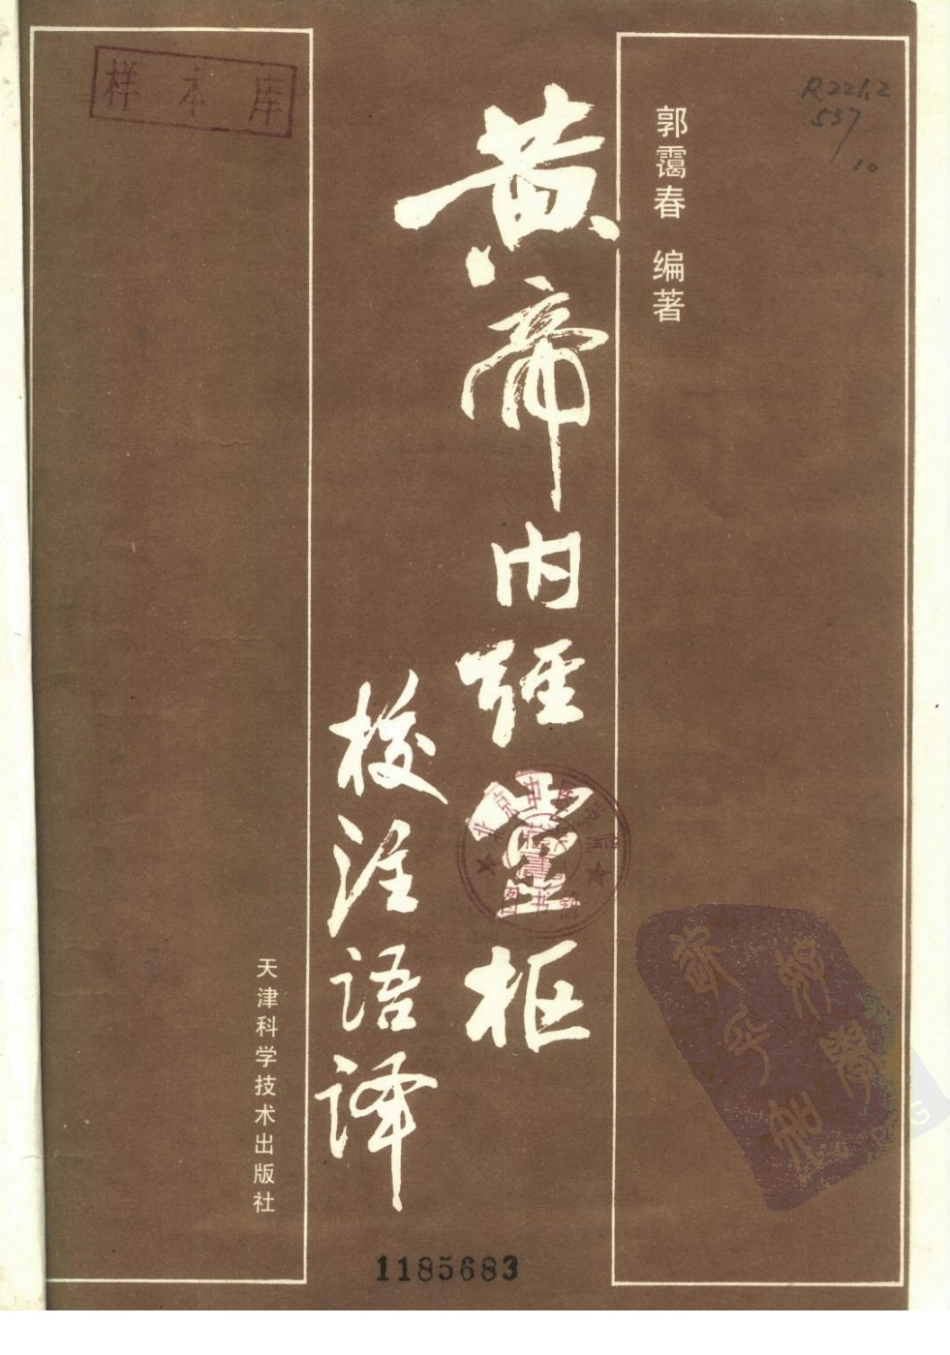 样本库
R221.2
537
10
郭霭春 编著
黄帝内经灵枢
校注语译
天津科学技术出版社
1185683